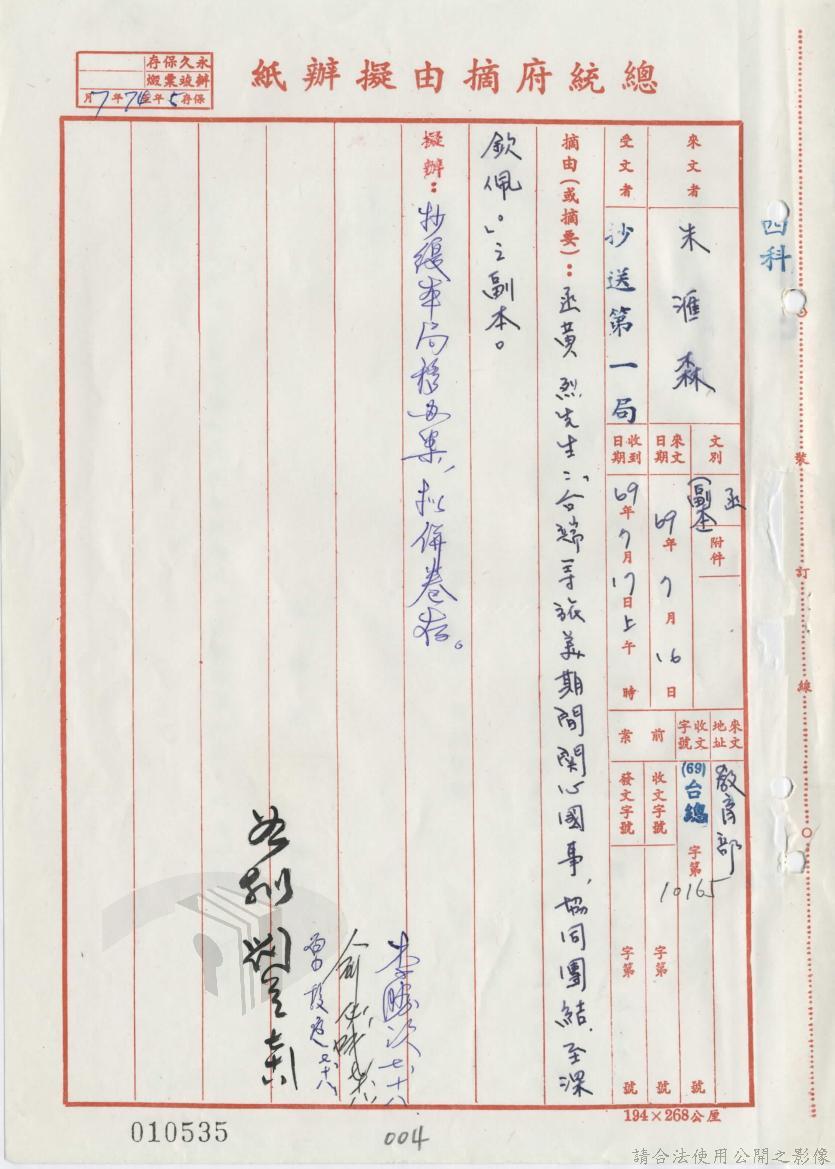 總統府摘由擬辦紙
永久保存
辦竣彙燬
保存5年74年7月
四科
來文者
朱滙森
文別
函
(副本)
附件
來文地址
教育部
收文字號
(69)台總
字第
10165
號
受文者
抄送第一局
來文日期
69年7月16日
收到日期
69年7月17日上午 時
前案
收文字號
字第
號
發文字號
字第
號
摘由(或摘要):
函黃烈先生:「台端等旅美期間關心國事,協同團結,至深
欽佩。」之副本。
擬辦:
抄緩本局 案,擬併卷存。
七、十八
七、十八
裝
訂
線
194×268公厘
010535
004
請合法使用公開之影像